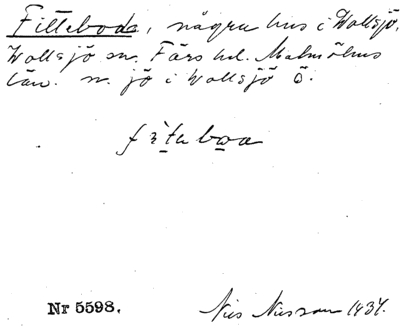 Fittebode, några hus i Wollsjö,
Wollsjö sn. Färs hd. Malmöhus
län. n. jö i Wollsjö ö.
fìtabωa
Nr 5598.
Nils Nilsson 1934.